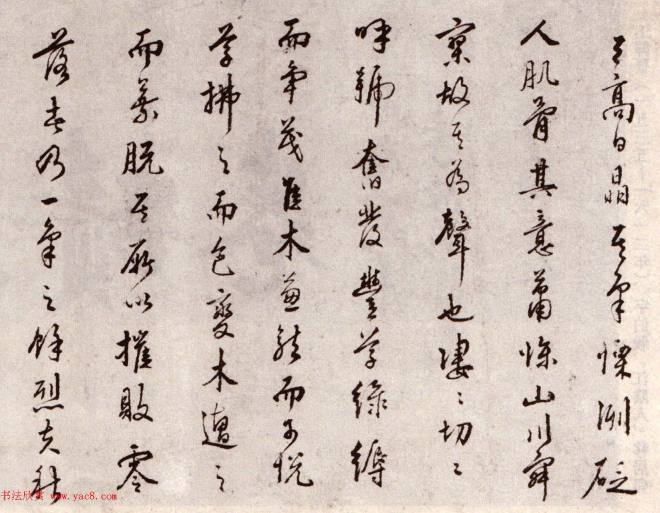 天高日晶其氣慄冽砭
人肌骨其意蕭條山川寂
寥故其為聲也淒〻切〻
呼號奮發豐草綠縟
而爭茂佳木蔥蘢而可悅
草拂之而色變木遭之
而葉脫其所以摧敗零
落者乃一氣之餘烈夫秋
书法欣赏 www.yac8.com